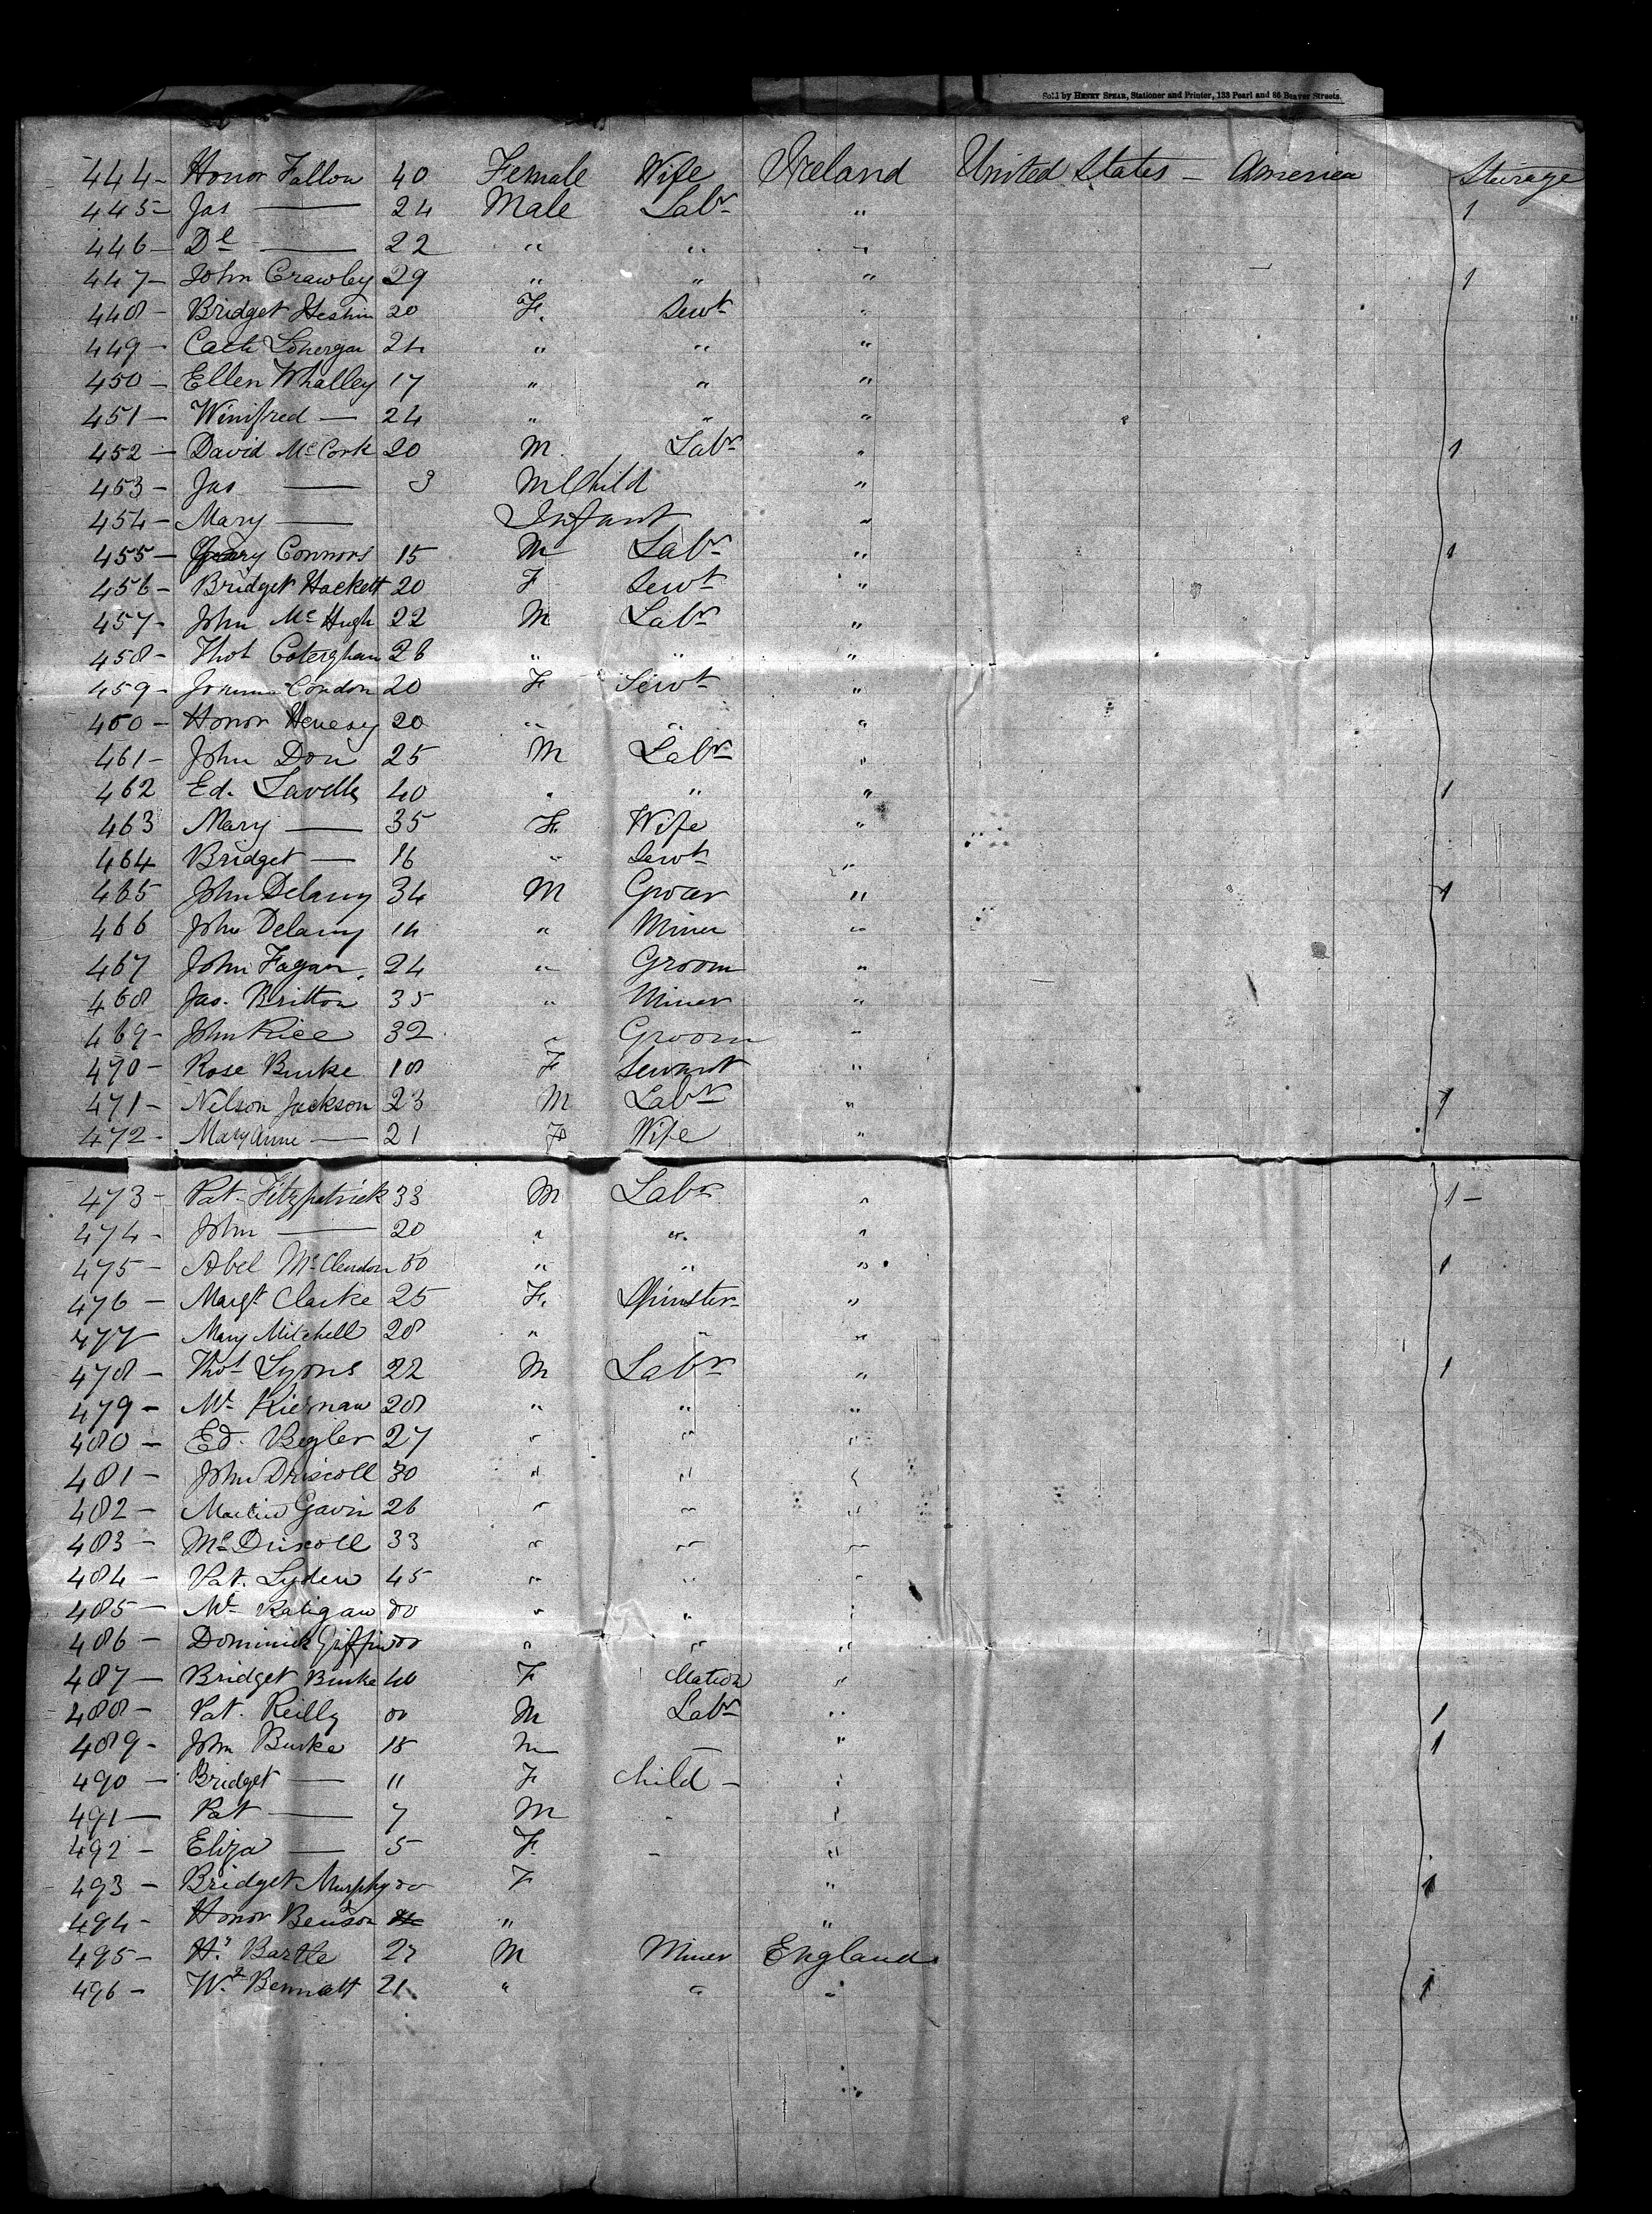 Sold by HENRY SPEAR, Stationer and Printer, 133 Pearl and 86 Beaver Streets.
444- Honor Fallon 40 Female Wife Ireland United States - America Steirage
445- Jas —— 24 Male Labr " 1
446- Dl —— 22 " " "
447- John Crawley 29 " " " 1
448- Bridget 20 F. Sevt "
449- Cath Lonergan 24 " " "
450- Ellen Whalley 17 " " "
451- Winifred — 24 " " "
452- David McCork 20 M Labr " 1
453- Jas —— 3 M Child "
454- Mary —— Infant "
455- Connors 15 M Labr " 1
456- Bridget Hackett 20 F Sevt "
457- John McHugh 22 M Labr "
458- Thos 26 " " "
459- Condon 20 F Sevt "
460- Honor Henesy 20 " " "
461- John Don 25 M Labr "
462 Ed. Lavelle 40 " " " 1
463 Mary —— 35 F. Wife "
464 Bridget — 16 " Sevt "
465 John Delany 34 M Grocer " 1
466 John Delany 14 " Miner "
467 John Fagan 24 " Groom "
468 Jas. Britton 35 " Miner "
469- John Rice 32 " Groom "
470- Rose Burke 18 F Servant "
471- Nelson Jackson 23 M Labr " 1
472- Mary Anne — 21 F Wife "
473- Pat. Fitzpatrick 33 M Labr " 1-
474- John —— 20 " " "
475- Abel McClendon 50 " " " 1
476- Margt Clarke 25 F. Spinster "
477- Mary Mitchell 28 " " "
478- Thos Lyons 22 M Labr " 1
479- Ml Kiernan 28 " " "
480- Ed. Begler 27 " " "
481- John Driscoll 30 " " "
482- Martin Gavin 26 " " "
483- Ml Driscoll 33 " " "
484- Pat. Lyden 45 " " "
485- Ml " " "
486- Dominick Griffin " " "
487- Bridget Burke 40 F Matron "
488- Pat. Reilly M Labr " 1
489- John Burke 18 M — " 1
490- Bridget — 11 F Child - "
491- Pat —— 7 M - "
492- Eliza —— 5 F. - "
493- Bridget Murphy F " 1
494- Honor Benson " "
495- Hy Bartle 27 M Miner England
496- Wm Bennatt 21 " " " 1